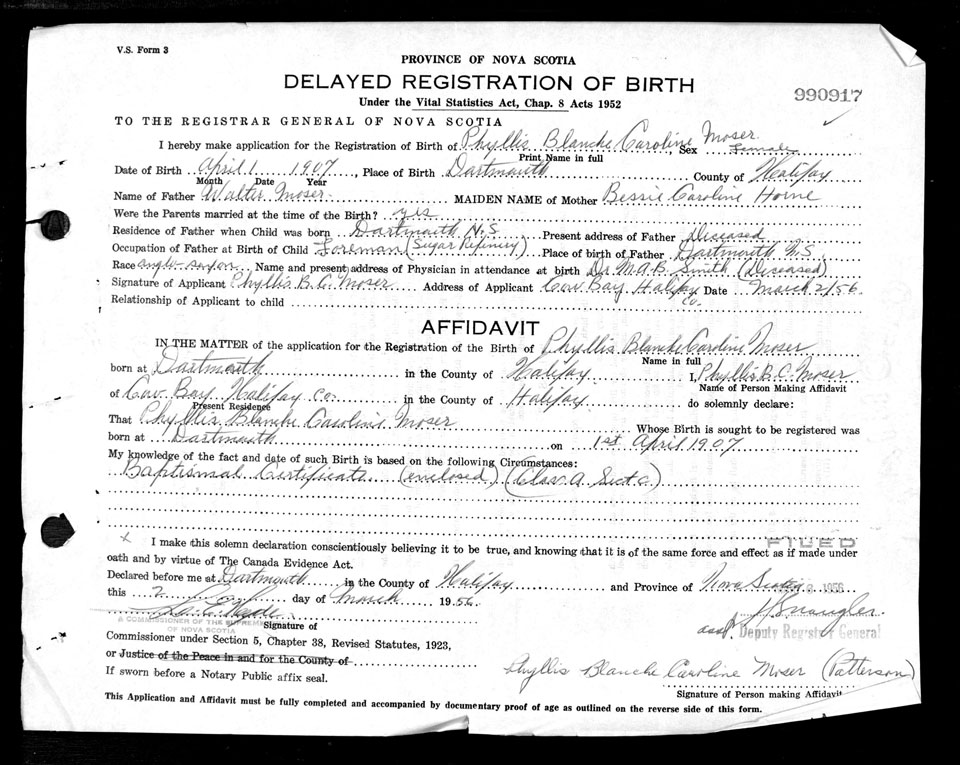 V.S. Form 3
PROVINCE OF NOVA SCOTIA
DELAYED REGISTRATION OF BIRTH
990917
Under the Vital Statistics Act, Chap. 8 Acts 1952
TO THE REGISTRAR GENERAL OF NOVA SCOTIA
I hereby make application for the Registration of Birth of Phyllis Blanche Caroline Moser, Sex Female
Print Name in full
Date of Birth April 1 1907, Place of Birth Dartmouth County of Halifax
Month Date Year
Name of Father Walter Moser MAIDEN NAME of Mother Bessie Caroline Horne
Were the Parents married at the time of the Birth? yes
Residence of Father when Child was born Dartmouth N.S Present address of Father Diceased
Occupation of Father at Birth of Child Foreman (Sugar Refinery) Place of birth of Father Dartmouth N.S.
Race anglo-saxon Name and present address of Physician in attendance at birth Dr M.A.B. Smith (Diceased)
Signature of Applicant Phyllis B.C. Moser Address of Applicant Cow Bay Halifax Co. Date March 2/56
Relationship of Applicant to child
AFFIDAVIT
IN THE MATTER of the application for the Registration of the Birth of Phyllis Blanche Caroline Moser
Name in full
born at Dartmouth in the County of Halifax I, Phyllis B.C. Moser
Name of Person Making Affidavit
of Cow Bay Halifax Co. in the County of Halifax do solemnly declare:
Present Residence
That Phyllis Blanche Caroline Moser Whose Birth is sought to be registered was
born at Dartmouth on 1st April 1907
My knowledge of the fact and date of such Birth is based on the following Circumstances:
Baptismal Certificate (enclosed) (Class A. Sect c)
FILED
x I make this solemn declaration conscientiously believing it to be true, and knowing that it is of the same force and effect as if made under
oath and by virtue of The Canada Evidence Act.
Declared before me at Dartmouth in the County of Halifax and Province of Nova Scotia
1956
this 2 day of March 1956
A COMMISSIONER OF THE SUPREME
OF NOVA SCOTIA
Signature of
asst. Deputy Registrar General
Commissioner under Section 5, Chapter 38, Revised Statutes, 1923,
or Justice of the Peace in and for the County of
Phyllis Blanche Caroline Moser (Patterson)
If sworn before a Notary Public affix seal.
Signature of Person making Affidavit
This Application and Affidavit must be fully completed and accompanied by documentary proof of age as outlined on the reverse side of this form.